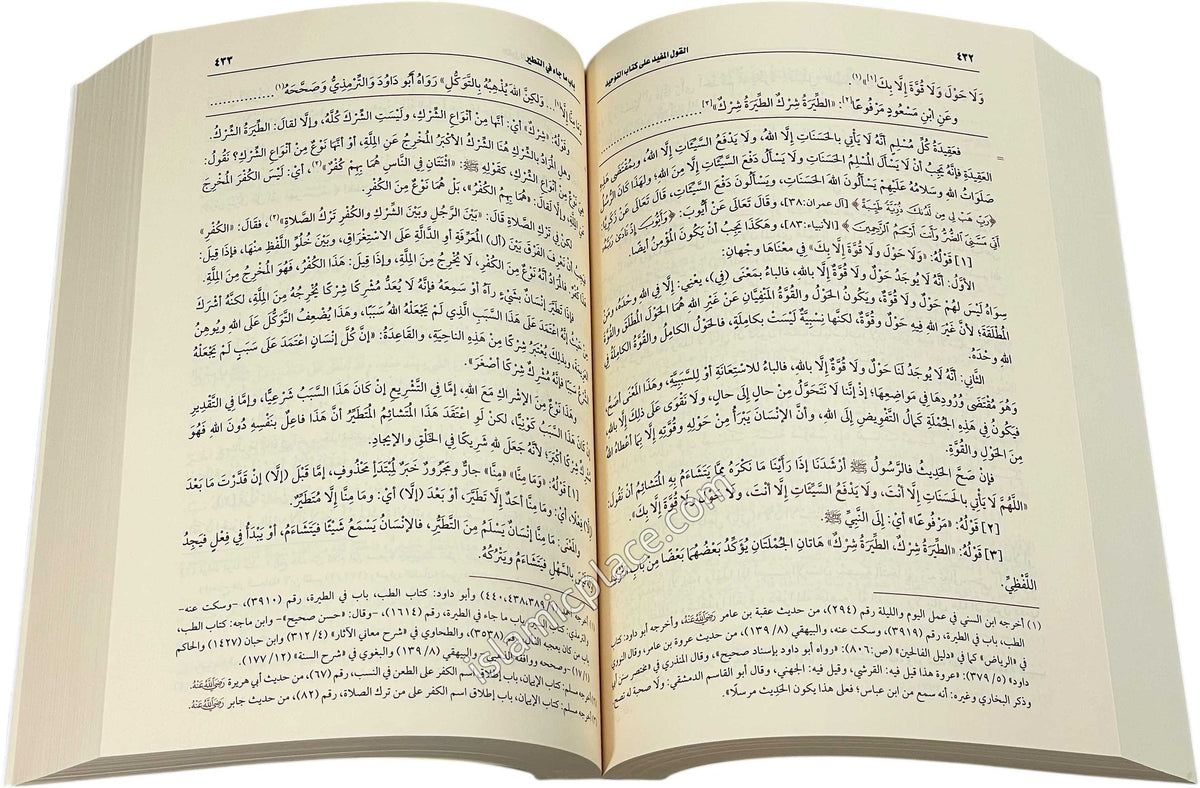 ٤٣٢
القول المفيد على كتاب التوحيد
وَلَا حَوْلَ وَلَا قُوَّةَ إِلَّا بِكَ[١]»(١).
وَعَنِ ابْنِ مَسْعُودٍ مَرْفُوعًا[٢]: «الطِّيَرَةُ شِرْكٌ الطِّيَرَةُ شِرْكٌ»[٣]
فعَقِيدَةُ كُلِّ مُسْلِمٍ أنَّهُ لَا يَأْتِي بالحَسَنَاتِ إِلَّا اللهُ، وَلَا يَدْفَعُ السَّيِّئَاتِ إِلَّا اللهُ، وبمُقْتَضَى هَذِهِ
العَقِيدَةِ فإنَّهُ يَجِبُ أنْ لَا يَسْأَلَ المُسْلِمُ الحَسَنَاتِ وَلَا يَسْأَلَ دَفْعَ السَّيِّئَاتِ إِلَّا مِنَ اللهِ؛ ولهَذَا كَانَ الرُّسُلُ
صَلَوَاتُ اللهِ وَسَلَامُهُ عَلَيْهِمْ يَسْأَلُونَ اللهَ الحَسَنَاتِ، ويَسْأَلُونَ دَفْعَ السَّيِّئَاتِ، قَالَ تَعَالَى عَنْ زَكَرِيَّا:
﴿رَبِّ هَبْ لِي مِن لَّدُنكَ ذُرِّيَّةً طَيِّبَةً﴾ [آل عمران:٣٨]، وقَالَ تَعَالَى عَنْ أَيُّوبَ: ﴿وَأَيُّوبَ إِذْ نَادَىٰ رَبَّهُ
أَنِّي مَسَّنِيَ الضُّرُّ وَأَنتَ أَرْحَمُ الرَّاحِمِينَ﴾ [الأنبياء:٨٣]، وهَكَذَا يَجِبُ أنْ يَكُونَ المُؤْمِنُ أيْضًا.
[١] قَوْلُهُ: «وَلَا حَوْلَ وَلَا قُوَّةَ إِلَّا بِكَ» في مَعْنَاهَا وجْهَانِ:
الأوَّلُ: أنَّهُ لَا يُوجَدُ حَوْلٌ وَلَا قُوَّةٌ إِلَّا بالله، فالبَاءُ بمَعْنَى (فِي)، يعْنِي: إِلَّا فِي اللهِ وحْدَهُ، ومَنْ
سِوَاهُ لَيْسَ لهُمْ حَوْلٌ وَلَا قُوَّةٌ، ويَكُونُ الحَوْلُ والقُوَّةُ المَنْفِيَّانِ عَنْ غَيْرِ اللهِ هُمَا الحَوْلَ المُطْلَقَ والقُوَّةَ
المُطْلَقَةَ؛ لأنَّ غَيْرَ اللهِ فيهِ حَوْلٌ وقُوَّةٌ، لكنَّهَا نِسْبِيَّةٌ لَيْسَتْ بكَامِلَةٍ، فالحَوْلُ الكامِلُ والقُوَّةُ الكامِلَةُ فِي
اللهِ وحْدَهُ.
الثَّاني: أنَّهُ لَا يُوجَدُ لَنَا حَوْلٌ وَلَا قُوَّةٌ إِلَّا بالله، فالبَاءُ للاسْتِعَانَةِ أَوْ للسَّبَبِيَّةِ، وهَذَا المَعْنَى أصَحُّ،
وَهُوَ مُقْتَضَى وُرُودِهَا فِي مَوَاضِعِهَا؛ إذْ إنَّنَا لَا نَتَحَوَّلُ مِنْ حالٍ إِلَى حَالٍ، ولَا نَقْوَى عَلَى ذَلِكَ إِلَّا بالله،
فيَكُونُ في هَذِهِ الجُمْلَةِ كَمَالُ التَّفْوِيضِ إِلَى اللهِ، وأنَّ الإنْسَانَ يَبْرَأُ مِنْ حَوْلِهِ وقُوَّتِهِ إِلَّا بِمَا أَعْطَاهُ اللهُ
مِنَ الحَوْلِ والقُوَّةِ.
فإنْ صَحَّ الحَدِيثُ فالرَّسُولُ ﷺ أرْشَدَنَا إذَا رَأَيْنَا مَا نَكْرَهُ مِمَّا يَتَشَاءَمُ بِهِ المُتَشَائِمُ أنْ نَقُولَ:
«اللَّهُمَّ لَا يَأْتِي بِالحَسَنَاتِ إِلَّا أَنْتَ، وَلَا يَدْفَعُ السَّيِّئَاتِ إِلَّا أَنْتَ، وَلَا حَوْلَ وَلَا قُوَّةَ إِلَّا بِكَ».
[٢] قَوْلُهُ: «مَرْفُوعًا» أيْ: إِلَى النَّبِيِّ ﷺ.
[٣] قَوْلُهُ: «الطِّيَرَةُ شِرْكٌ، الطِّيَرَةُ شِرْكٌ» هَاتَانِ الجُمْلَتَانِ يُؤَكِّدُ بَعْضُهُمَا بَعْضًا مِنْ بابِ التَّوْكِيدِ
اللَّفْظِيِّ.
(١) أخرجه ابن السني في عمل اليوم والليلة رقم (٢٩٤)، من حديث عقبة بن عامر رَضِيَ اللَّهُ عَنْهُ، وأخرجه أبو داود: كتاب
الطب، باب في الطيرة، رقم (٣٩١٩)، وسكت عنه، والبيهقي (٨/ ١٣٩)، من حديث عروة بن عامر، وقال النووي
في «الرياض» كما في «دليل الفالحين» (ص:٨٠٦): «رواه أبو داود بإسناد صحيح»، وقال المنذري في «مختصر سنن أبي
داود» (٥/ ٣٧٩): «عروة هذا قيل فيه: القرشي، وقيل فيه: الجهني، وقال أبو القاسم الدمشقي: ولا صحبة له تصح
وذكر البخاري وغيره: أنه سمع من ابن عباس؛ فعلى هذا يكون الحديث مرسلًا».
باب ما جاء في التطير
٤٣٣
وَمَا مِنَّا إِلَّا[١]، وَلَكِنَّ اللهَ يُذْهِبُهُ بِالتَّوَكُّلِ» رَوَاهُ أَبُو دَاوُدَ وَالتِّرْمِذِيُّ وَصَحَّحَهُ(١)
وقَوْلُهُ: «شِرْكٌ» أيْ: أنَّها مِنْ أنْوَاعِ الشِّرْكِ، ولَيْسَتِ الشِّرْكَ كُلَّهُ، وإلَّا لقَالَ: الطِّيَرَةُ الشِّرْكُ.
وهلِ المُرَادُ بالشِّرْكِ هُنَا الشِّرْكُ الأكْبَرُ المُخْرِجُ عَنِ المِلَّةِ، أوْ أنَّهَا نَوْعٌ مِنْ أنْوَاعِ الشِّرْكِ؟ نَقُولُ:
نَوْعٌ مِنْ أنْوَاعِ الشِّرْكِ، كقَوْلِهِ ﷺ: «اثْنَتَانِ فِي النَّاسِ هُمَا بِهِمْ كُفْرٌ»(٢)، أيْ: لَيْسَ الكُفْرَ المُخْرِجَ
عَنِ المِلَّةِ، وإلَّا لقَالَ: «هُمَا بِهِمُ الكُفْرُ»، بَلْ هُمَا نَوْعٌ مِنَ الكُفْرِ.
لكِنْ في تَرْكِ الصَّلاةِ قَالَ: «بَيْنَ الرَّجُلِ وَبَيْنَ الشِّرْكِ وَالكُفْرِ تَرْكُ الصَّلاةِ»(٣)، فقَالَ: «الكُفْرِ»
فيَجِبُ أنْ نَعْرِفَ الفَرْقَ بَيْنَ (أل) المُعَرِّفَةِ أوِ الدَّالَّةِ عَلَى الاسْتِغْرَاقِ، وبَيْنَ خُلُوِّ اللَّفْظِ مِنْهَا، فإذَا قِيلَ:
هَذَا كُفْرٌ. فالمُرَادُ أنَّهُ نَوْعٌ مِنَ الكُفْرِ، لَا يُخْرِجُ مِنَ المِلَّةِ، وإذَا قِيلَ: هَذَا الكُفْرُ، فهُوَ المُخْرِجُ مِنَ المِلَّةِ.
فإذَا تَطَيَّرَ إنْسَانٌ بشَيْءٍ رَآهُ أوْ سَمِعَهُ فإنَّهُ لَا يُعَدُّ مُشْرِكًا شِرْكًا يُخْرِجُهُ مِنَ المِلَّةِ، لكنَّهُ أشْرَكَ
مِنْ حَيْثُ إنَّهُ اعْتَمَدَ عَلَى هَذَا السَّبَبِ الَّذِي لَمْ يَجْعَلْهُ اللهُ سَبَبًا، وهَذَا يُضْعِفُ التَّوَكُّلَ عَلَى اللهِ ويُوهِنُ
العَزِيمَةَ، وبذَلِكَ يُعْتَبَرُ شِرْكًا مِنْ هَذِهِ النَّاحِيَةِ، والقَاعِدَةُ: «إنَّ كُلَّ إنْسَانٍ اعْتَمَدَ عَلَى سَبَبٍ لَمْ يَجْعَلْهُ
الشَّرْعُ سَبَبًا فإنَّهُ مُشْرِكٌ شِرْكًا أصْغَرَ».
وهَذَا نَوْعٌ مِنَ الإشْرَاكِ مَعَ اللهِ، إمَّا فِي التَّشْرِيعِ إنْ كَانَ هَذَا السَّبَبُ شَرْعِيًّا، وإمَّا فِي التَّقْدِيرِ
إنْ كَانَ هَذَا السَّبَبُ كَوْنِيًّا، لكنْ لَوِ اعْتَقَدَ هَذَا المُتَشَائِمُ المُتَطَيِّرُ أنَّ هَذَا فاعِلٌ بنَفْسِهِ دُونَ اللهِ فهُوَ
مُشْرِكٌ شِرْكًا أكْبَرَ؛ لأنَّهُ جَعَلَ للهِ شَرِيكًا فِي الخَلْقِ والإيجَادِ.
[١] قَوْلُهُ: «وَمَا مِنَّا» «مِنَّا» جارٌّ ومَجْرُورٌ خَبَرٌ لمُبْتَدَأٍ مَحْذُوفٍ، إمَّا قَبْلَ (إلَّا) إنْ قَدَّرْتَ مَا بَعْدَ
(إلَّا) فِعْلًا، أيْ: ومَا مِنَّا أحَدٌ إلَّا تَطَيَّرَ، أوْ بَعْدَ (إلَّا) أيْ: ومَا مِنَّا إلَّا مُتَطَيِّرٌ.
والمَعْنَى: مَا مِنَّا إنْسَانٌ يَسْلَمُ مِنَ التَّطَيُّرِ، فالإنْسَانُ يَسْمَعُ شَيْئًا فيَتَشَاءَمُ، أوْ يَبْدَأُ فِي فِعْلٍ فيَجِدُ
بالسَّهْلِ فيَتَشَاءَمُ ويَتْرُكُهُ.
(١) أخرجه (٣٨٩، ٤٣٨، ٤٤٠)، وأبو داود: كتاب الطب، باب في الطيرة، رقم (٣٩١٠)، -وسكت عنه-
والترمذي: باب ما جاء في الطيرة، رقم (١٦١٤)، -وقال: «حسن صحيح» - وابن ماجه: كتاب الطب،
باب من كان يعجبه رقم (٣٥٣٨)، والطحاوي في «شرح معاني الآثار» (٤/ ٣١٢) وابن حبان (١٤٢٧) والحاكم
(١/ ١٧) -وصححه ووافقه الذهبي- والبيهقي (٨/ ١٣٩) والبغوي في «شرح السنة» (١٢/ ١٧٧).
(٢) أخرجه مسلم: كتاب الإيمان، باب إطلاق اسم الكفر على الطعن في النسب، رقم (٦٧)، من حديث أبي هريرة رَضِيَ اللَّهُ عَنْهُ.
(٣) أخرجه مسلم: كتاب الإيمان، باب إطلاق اسم الكفر على من ترك الصلاة، رقم (٨٢)، من حديث جابر رَضِيَ اللَّهُ عَنْهُ.
islamicplace.com